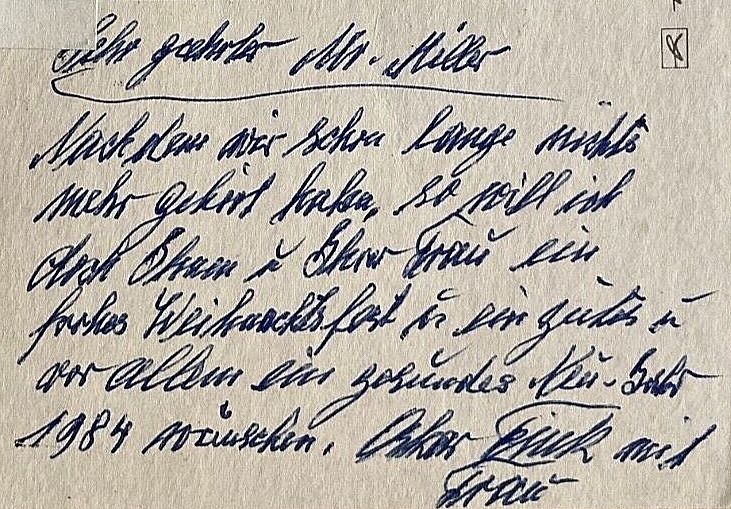 Sehr geehrter Mr. Miller
Nachdem wir schon lange nichts
mehr gehört haben, so will ich
doch Ihnen u Ihrer Frau ein
frohes Weihnachtsfest u ein gutes u
vor allem ein gesundes Neu-Jahr
1984 wünschen. Oskar mit
Frau